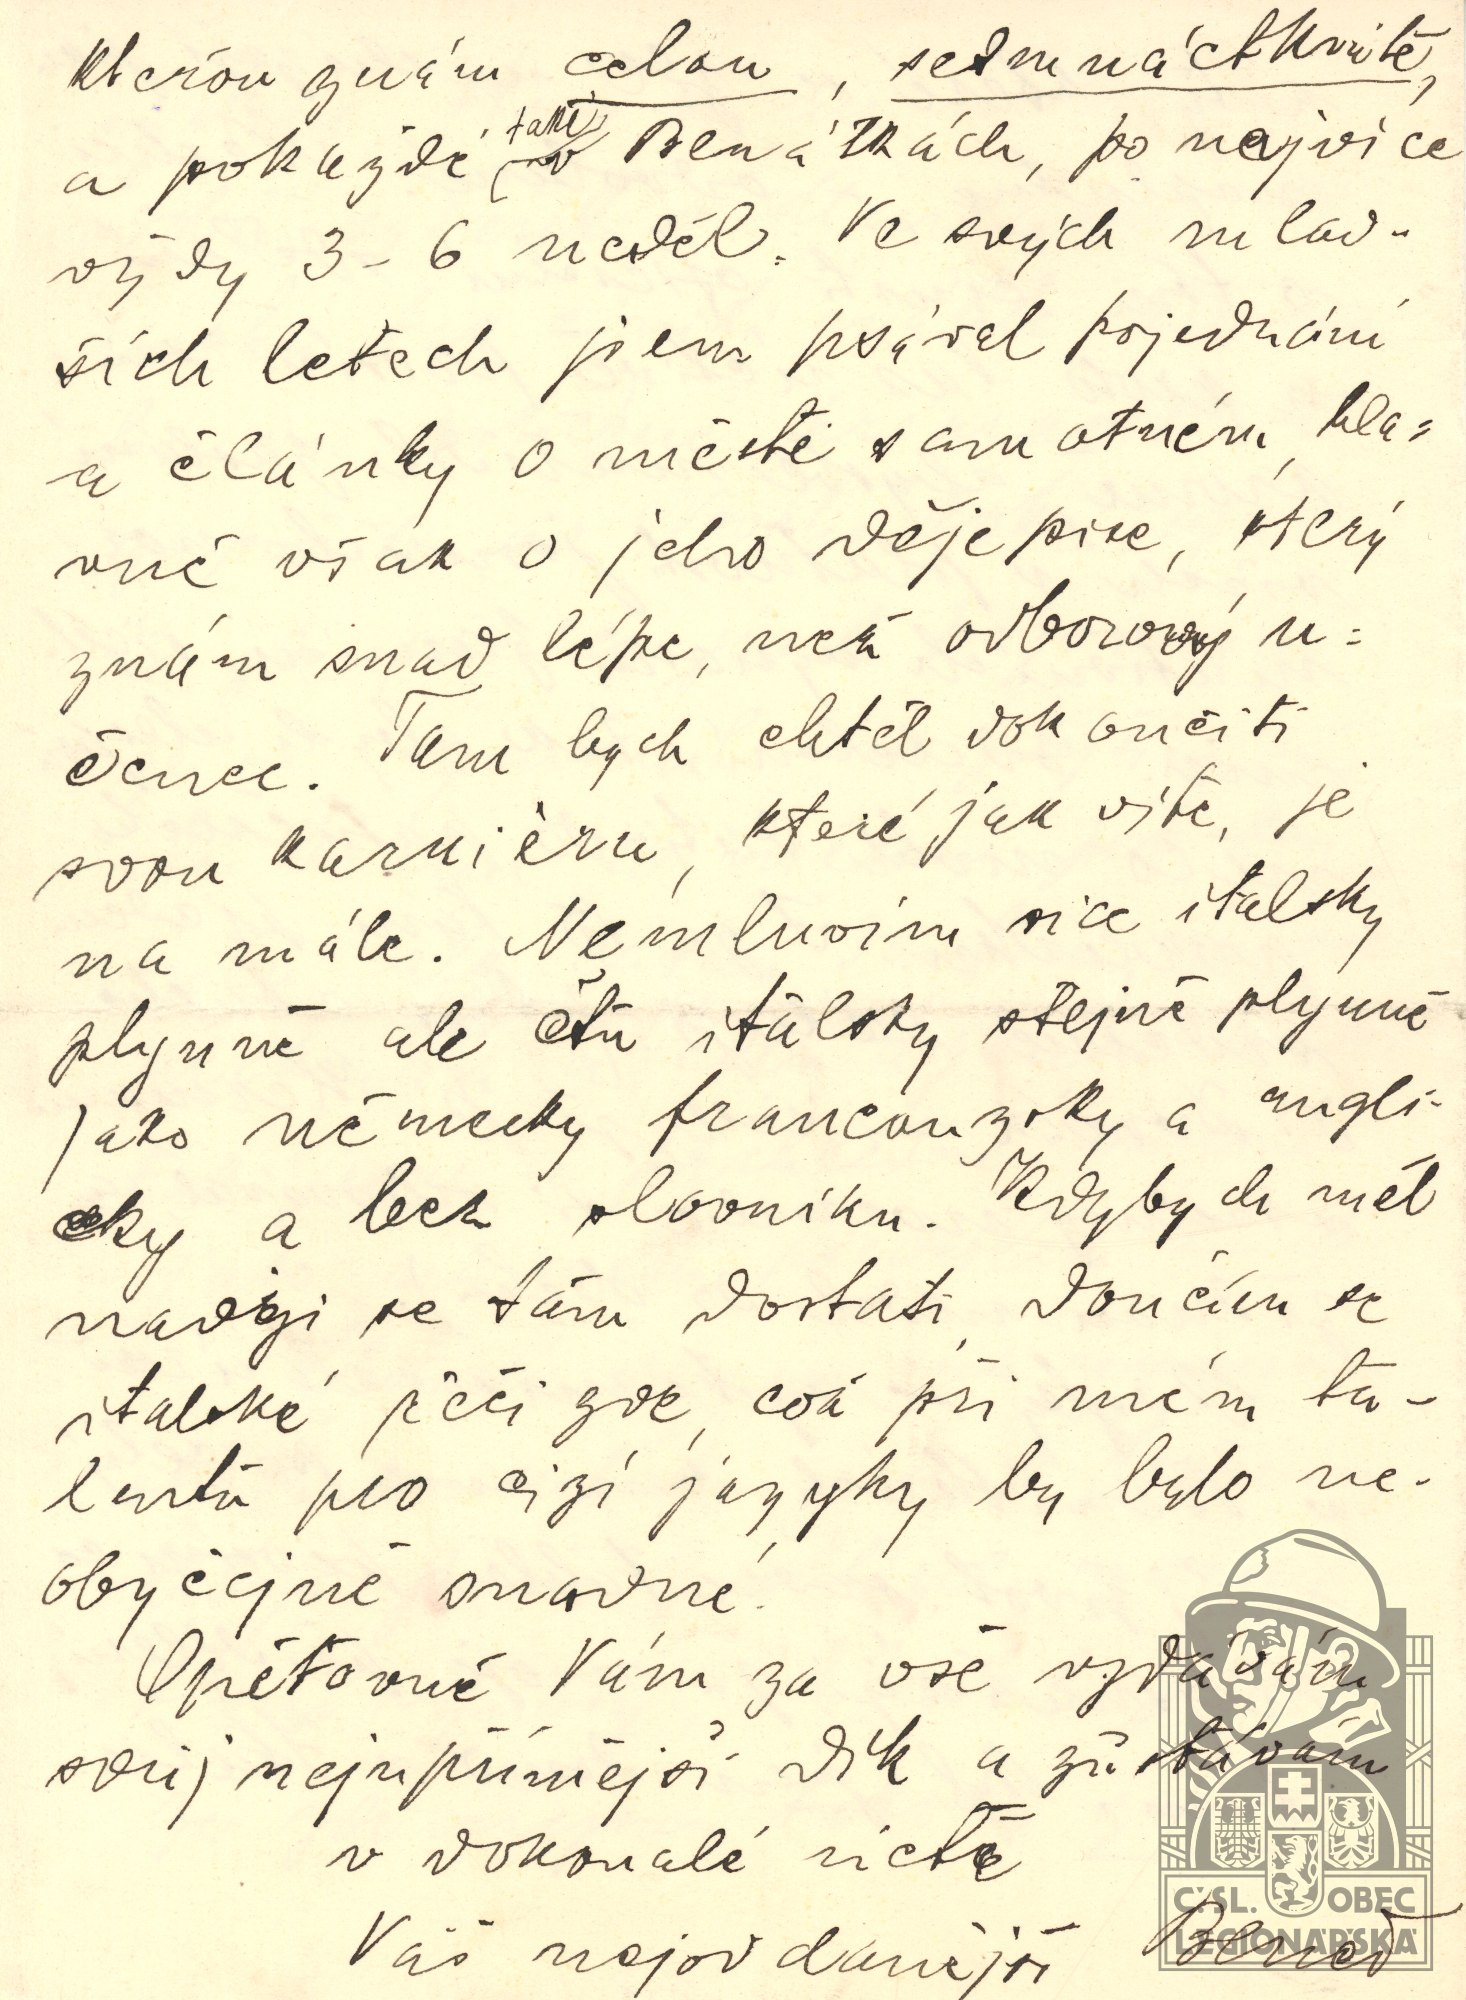 kterou znám celou, sedmnáctkráte,
a pokaždé také v Benátkách, po nejvíce
vždy 3-6 neděl. Ve svých mlad-
ších letech jsem psával pojednání
a články o městě samotném, hla=
vně však o jeho dějepise, který
znám snad lépe, než odborový u=
čenec. Tam bych chtěl dokončiti
svou karriéru, které jak víte, je
na mále. Nemluvím sice italsky
plynně ale čtu italsky stejně plynně
jako německy francouzsky a angli-
cky a bez slovníku. Kdybych měl
naději se tam dostati, doučím se
italské řeči zde, což při mém ta-
lentu pro cizí jazyky by bylo ne-
obyčejně snadné.
Opětovně Vám za vše vzdávám
svůj nejupřímnější dík a zůstávám
v dokonalé úctě
Váš nejoddanější Beneš
ČSL. OBEC
LEGIONÁŘSKÁ